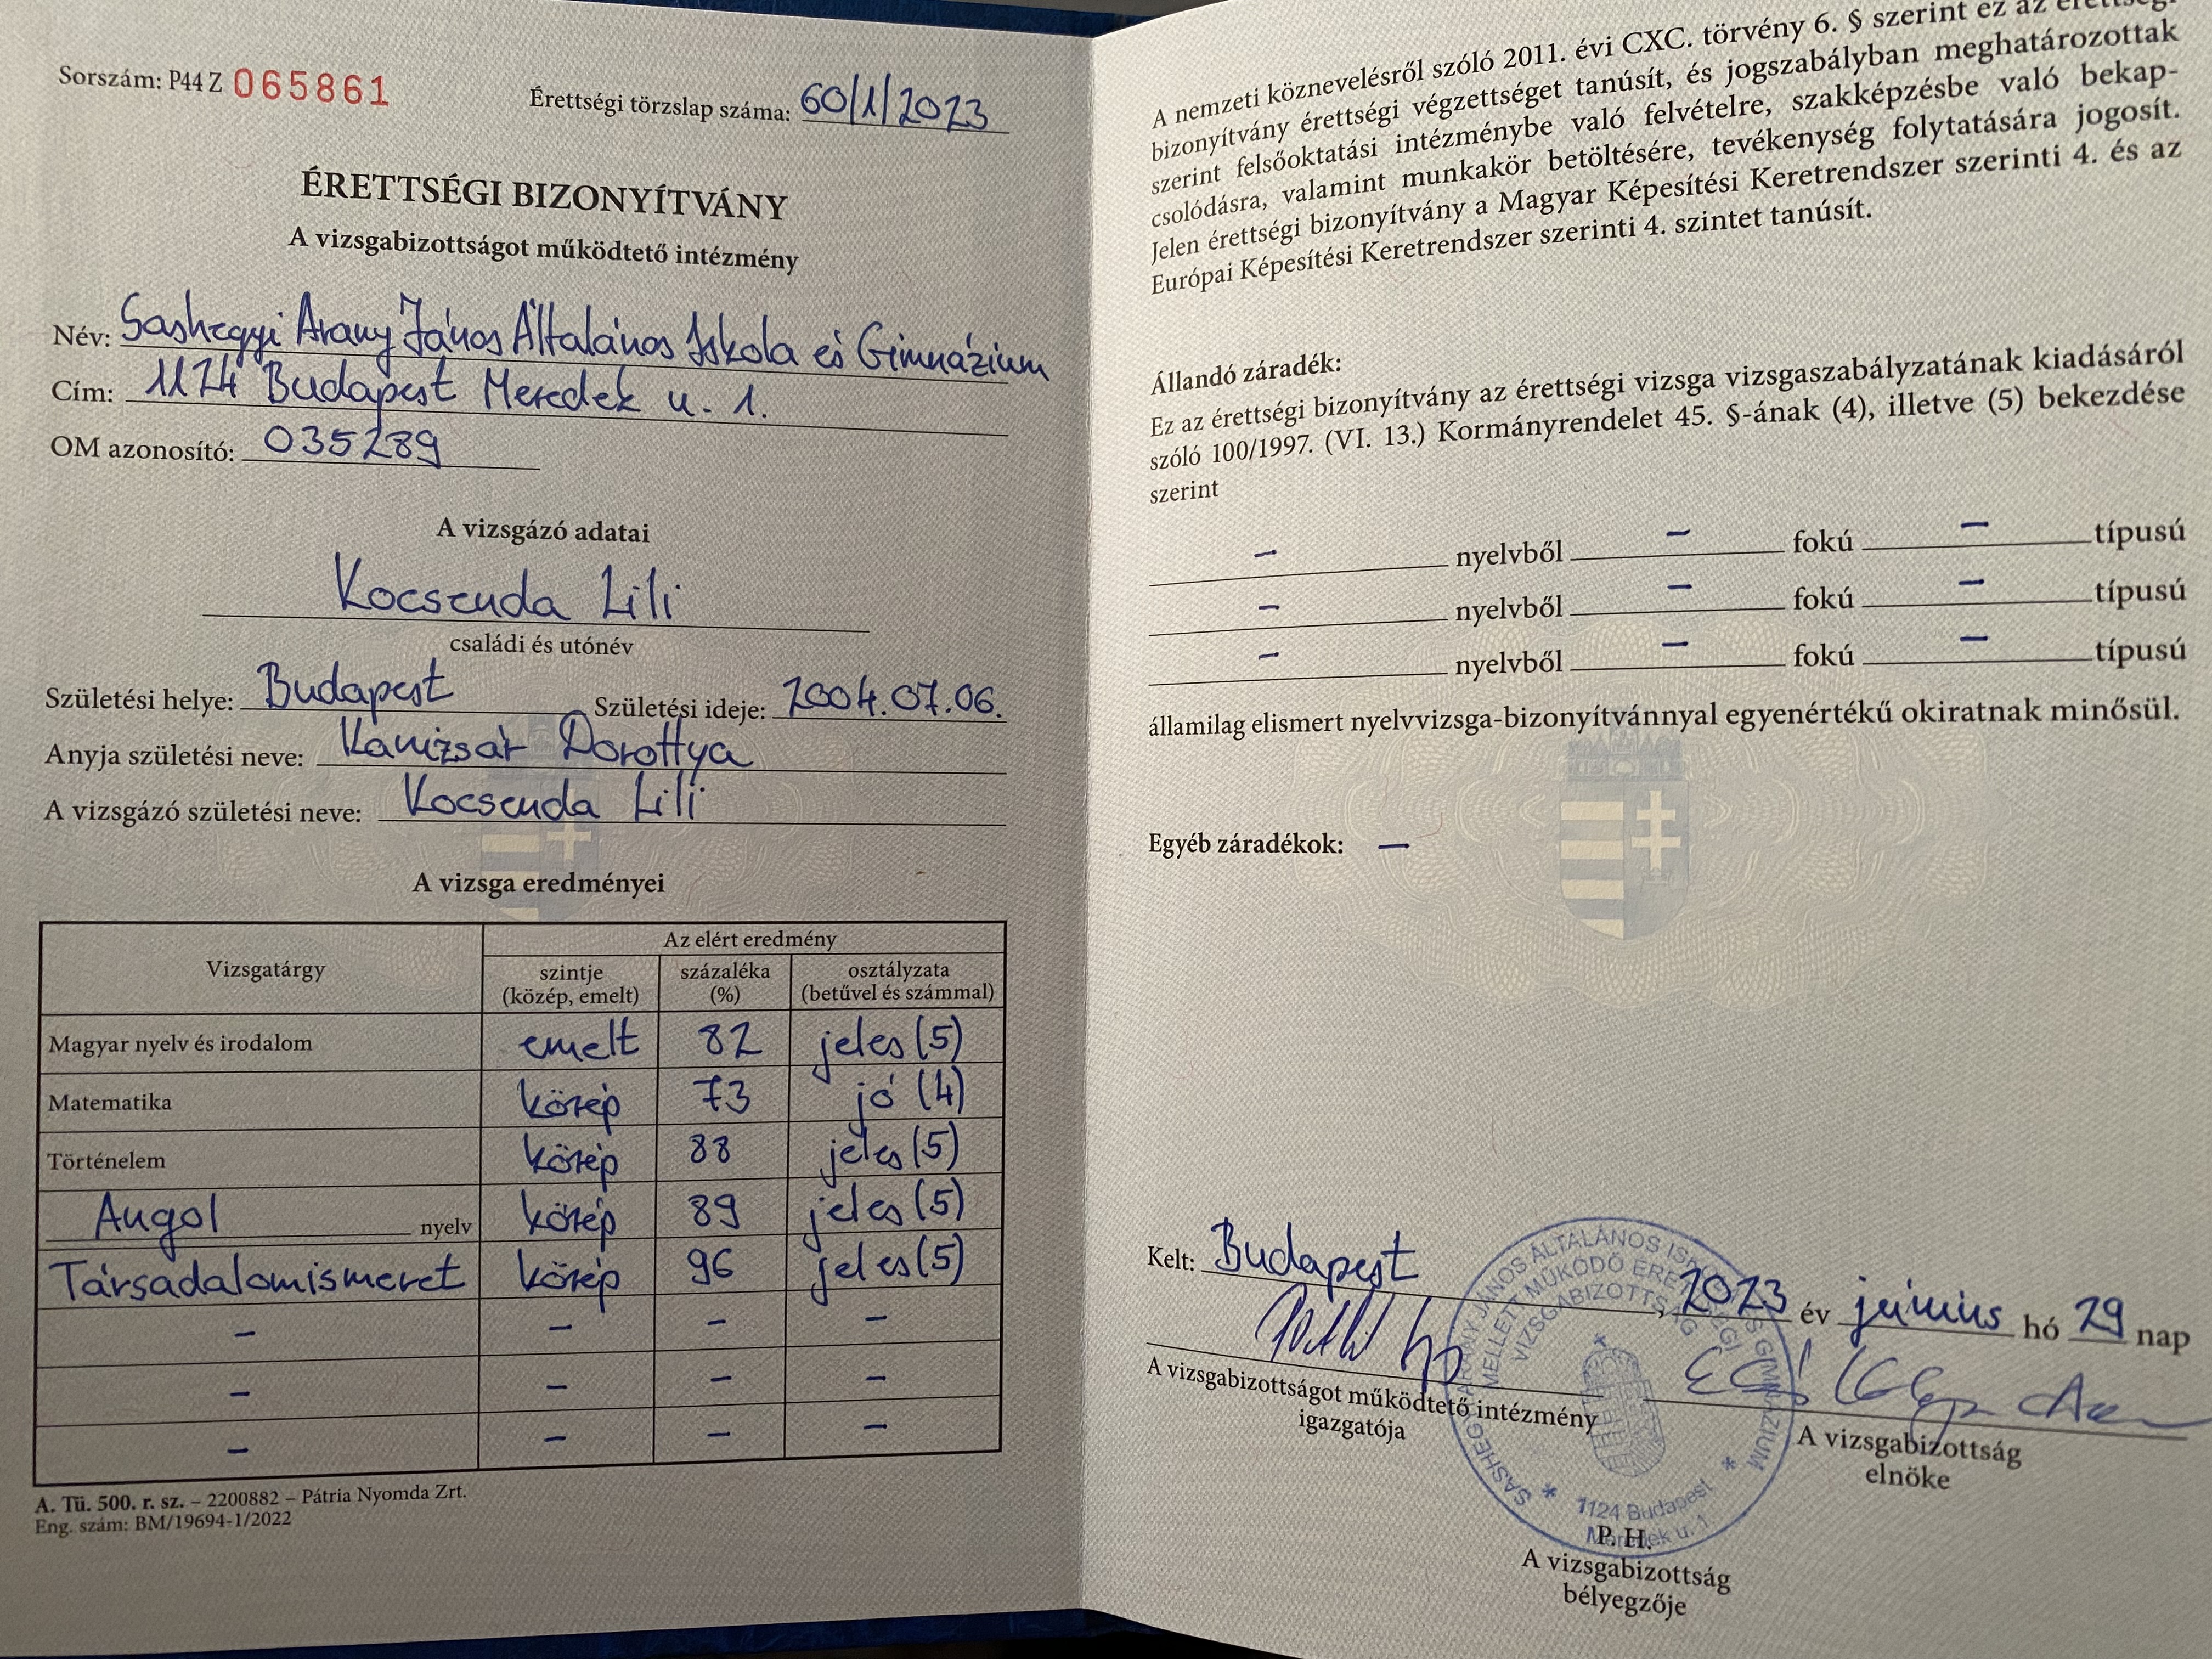 Sorszám: P44 Z 065861
Érettségi törzslap száma: 60/1/2023
ÉRETTSÉGI BIZONYÍTVÁNY
A vizsgabizottságot működtető intézmény
Név: Sashegyi Arany János Általános Iskola és Gimnázium
Cím: 1124 Budapest Meredek u. 1.
OM azonosító: 035289
A vizsgázó adatai
Kocsenda Lili
családi és utónév
Születési helye: Budapest Születési ideje: 2004.07.06.
Anyja születési neve: Kanizsár Dorottya
A vizsgázó születési neve: Kocsenda Lili
A vizsga eredményei
Vizsgatárgy
Az elért eredmény
szintje (közép, emelt)
százaléka (%)
osztályzata (betűvel és számmal)
Magyar nyelv és irodalom emelt 82 jeles (5)
Matematika közép 73 jó (4)
Történelem közép 88 jeles (5)
Angol nyelv közép 89 jeles (5)
Társadalomismeret közép 96 jeles (5)
– – – –
– – – –
– – – –
A. Tü. 500. r. sz. – 2200882 – Pátria Nyomda Zrt.
Eng. szám: BM/19694-1/2022
A nemzeti köznevelésről szóló 2011. évi CXC. törvény 6. § szerint ez az érettségi
bizonyítvány érettségi végzettséget tanúsít, és jogszabályban meghatározottak
szerint felsőoktatási intézménybe való felvételre, szakképzésbe való bekap-
csolódásra, valamint munkakör betöltésére, tevékenység folytatására jogosít.
Jelen érettségi bizonyítvány a Magyar Képesítési Keretrendszer szerinti 4. és az
Európai Képesítési Keretrendszer szerinti 4. szintet tanúsít.
Állandó záradék:
Ez az érettségi bizonyítvány az érettségi vizsga vizsgaszabályzatának kiadásáról
szóló 100/1997. (VI. 13.) Kormányrendelet 45. §-ának (4), illetve (5) bekezdése
szerint
– nyelvből – fokú – típusú
– nyelvből – fokú – típusú
– nyelvből – fokú – típusú
államilag elismert nyelvvizsga-bizonyítvánnyal egyenértékű okiratnak minősül.
Egyéb záradékok: –
Kelt: Budapest, 2023 év június hó 29 nap
A vizsgabizottságot működtető intézmény
igazgatója
A vizsgabizottság
elnöke
SASHEGYI ARANY JÁNOS ÁLTALÁNOS ISKOLA ÉS GIMNÁZIUM
MELLETT MŰKÖDŐ ÉRETTSÉGI
VIZSGABIZOTTSÁG
* 1124 Budapest *
Meredek u. 1.
P. H.
A vizsgabizottság
bélyegzője